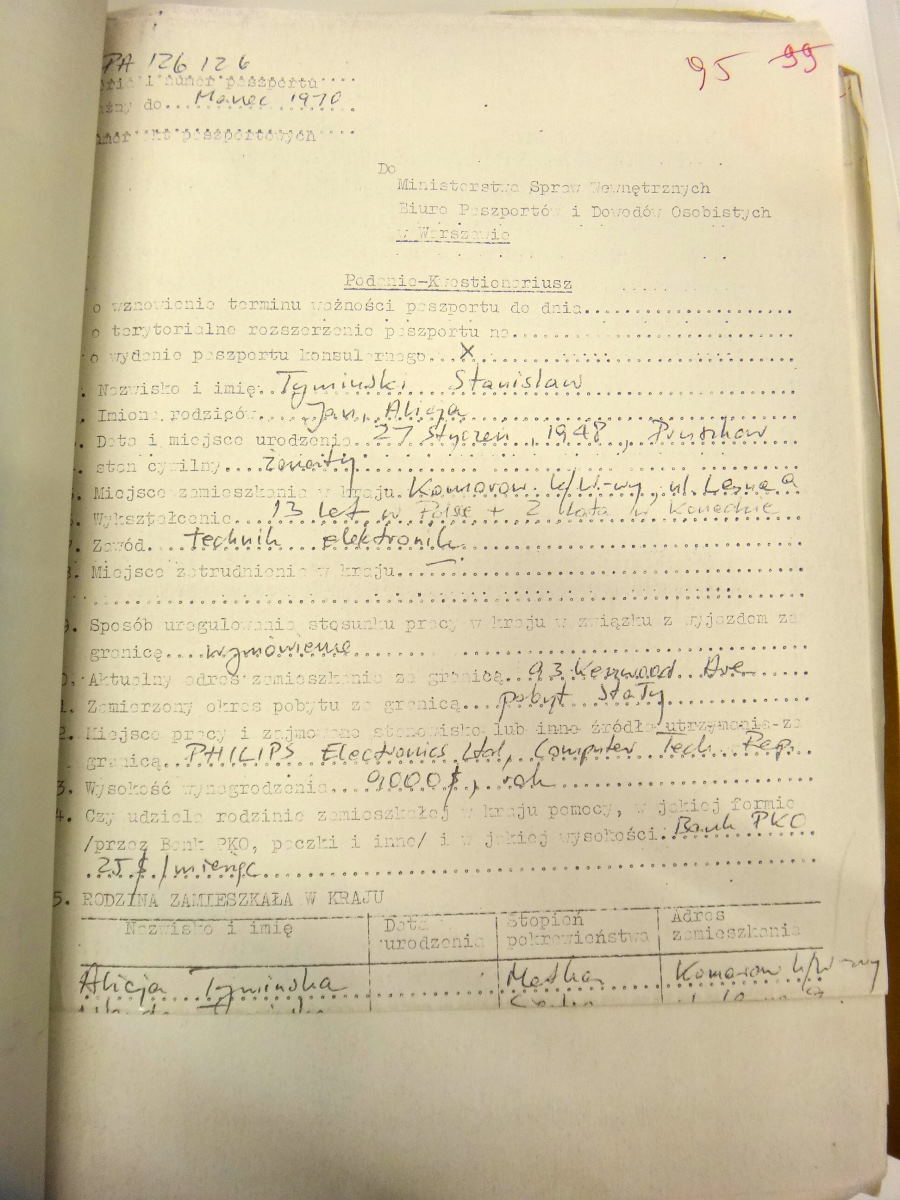 PA 126 126
95 99
numer paszportu
do... Marzec 1970
paszportowych
Do
Ministerstwa Spraw Wewnętrznych
Biuro Paszportów i Dowodów Osobistych
w Warszawie
Podanie-Kwestionariusz
o wznowienie terminu ważności paszportu do dnia
o terytorialne rozszerzenie paszportu na
o wydanie paszportu konsularnego... X
. Nazwisko i imię. Tyminski Stanislaw
. Imiona rodziców.... Jan, Alicja
. Data i miejsce urodzenia. 27 Styczeń, 1948, Pruszkow
. stan cywilny.... żonaty
. Miejsce zamieszkania w kraju. Komorow k/W-wy, ul. Lesna
. Wykształcenie... 13 lat w Polsce + 2 lata w Kanadzie
. Zawód... technik elektronik
. Miejsce zatrudnienia w kraju... —
. Sposób uregulowania stosunku pracy w kraju w związku z wyjazdem za
granicę.... wymówienie
. Aktualny adres zamieszkania za granicą.. 93 Kenwood Ave
1. Zamierzony okres pobytu za granicą... pobyt Stały
2. Miejsce pracy i zajmowane stanowisko lub inne źródło utrzymania za
granicą.. PHILIPS Electronics Ltd, Computer Tech Rep.
3. Wysokość wynagrodzenia... 9000 $, rok
4. Czy udziela rodzinie zamieszkałej w kraju pomocy, w jakiej formie
/przez Bank PKO, paczki i inne/ i w jakiej wysokości. Bank PKO
. 25 $ / miesiąc
5. RODZINA ZAMIESZKAŁA W KRAJU
Nazwisko i imię Data urodzenia Stopień pokrewieństwa Adres zamieszkania
Alicja Tyminska Matka Komorow k/W-wy